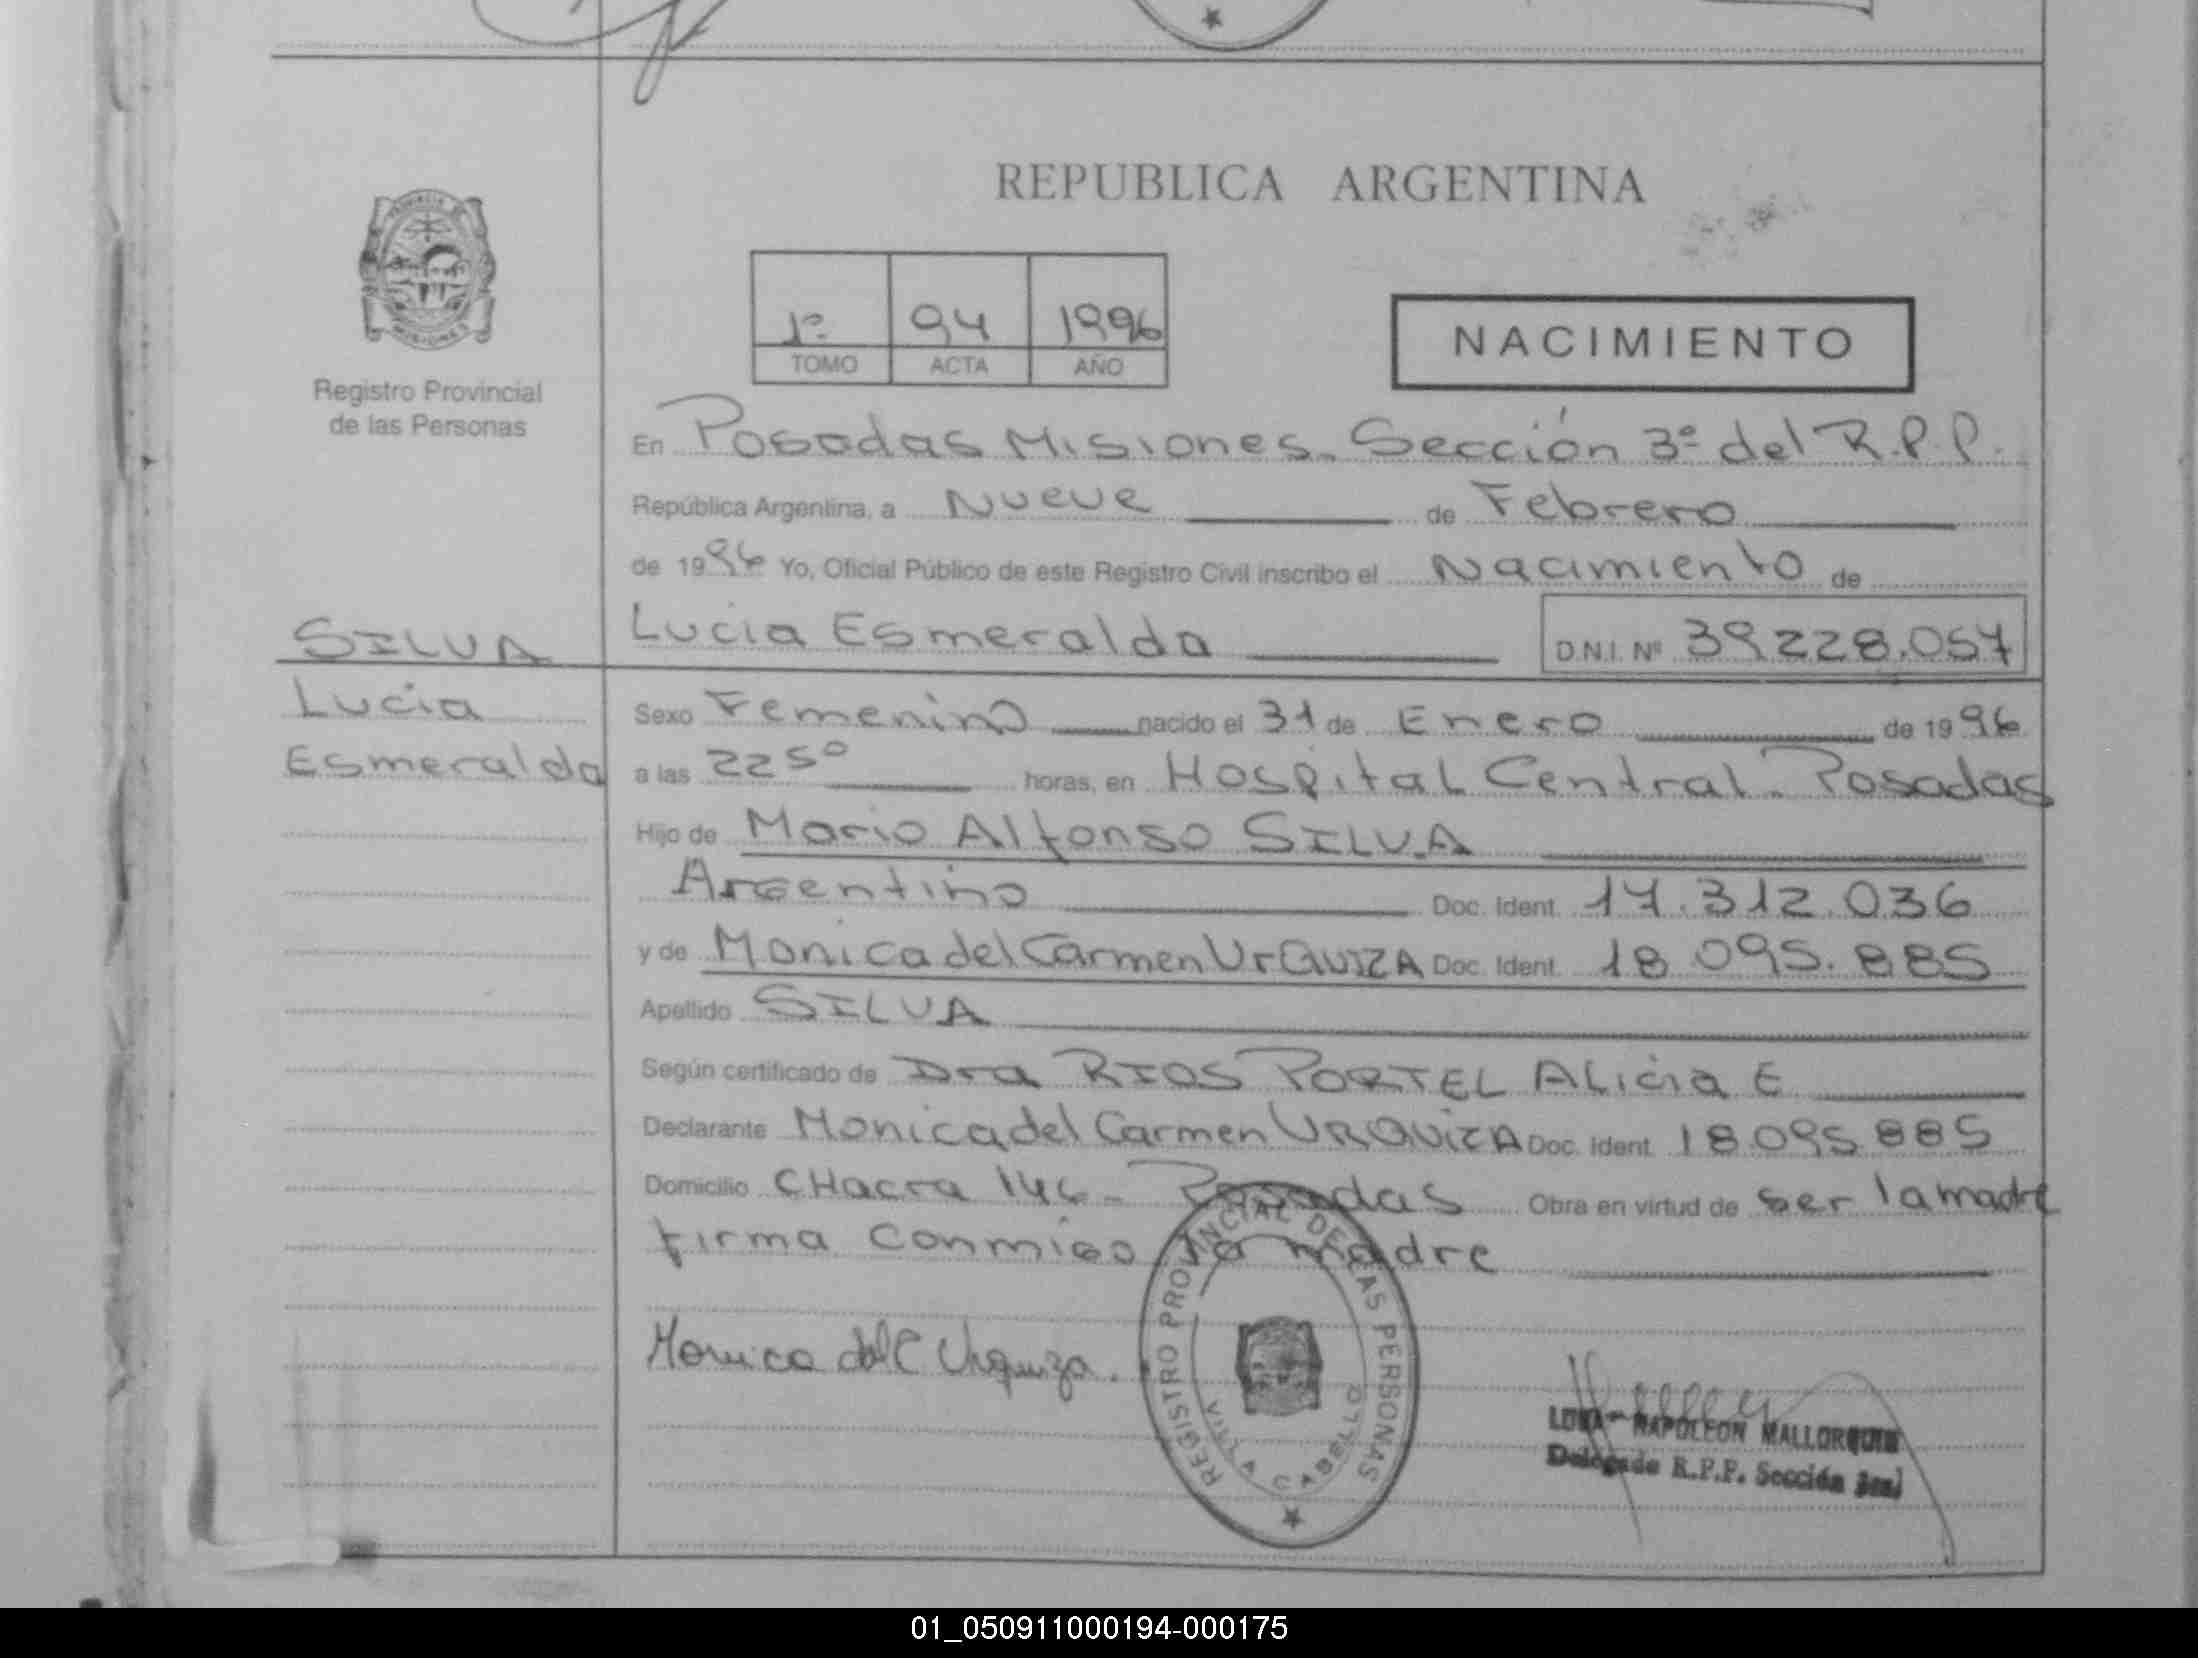 REPUBLICA ARGENTINA
1º 94 1996
TOMO ACTA AÑO
NACIMIENTO
Registro Provincial
de las Personas
En Posadas Misiones. Sección 3º del R.P.P.
República Argentina, a Nueve de Febrero
de 1996 Yo, Oficial Público de este Registro Civil inscribo el Nacimiento de
Lucia Esmeralda D.N.I. Nº 39228.057
SILVA
Lucia
Esmeralda
Sexo Femenino nacido el 31 de Enero de 1996
a las 2250 horas, en Hospital Central. Posadas
Hijo de Mario Alfonso SILVA
Argentino Doc. Ident. 17.312.036
y de Monica del Carmen UrQUIZA Doc. Ident. 18 095.885
Apellido SILVA
Según certificado de Dra RIOS PORTEL ALicia E
Declarante Monica del Carmen URQUIZA Doc. Ident. 18.095.885
Domicilio CHacra 146 - Posadas Obra en virtud de ser la madre
firma conmigo la madre
Monica del C Urquiza.
REGISTRO PROVINCIAL DE LAS PERSONAS
VILLA CABELLO
NAPOLEON MALLORQUIN
Delegado R.P.P. Sección 3ra
01_050911000194-000175